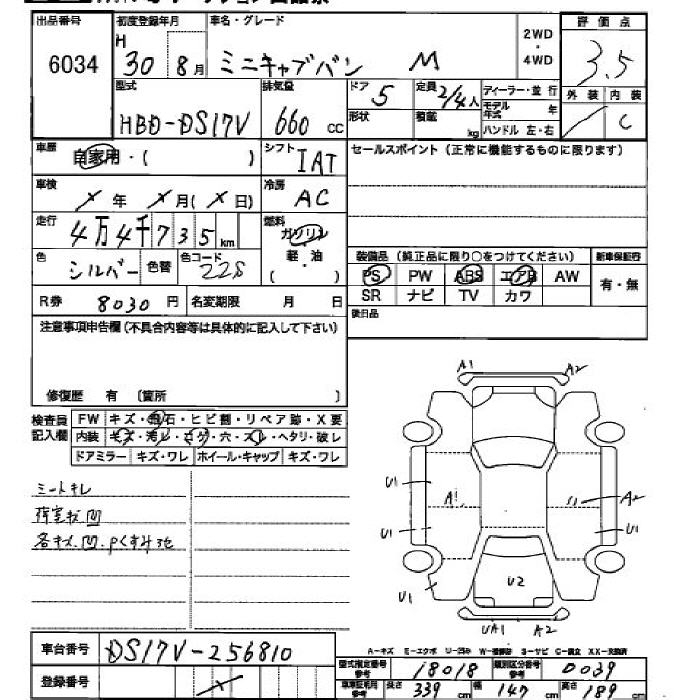 出品番号 初度登録年月 車名・グレード 評価点
6034 H 30 8月 ミニキャブバン M 2WD・4WD 3.5
型式 排気量 ドア 定員 ディーラー・並行 外装 内装
HBD-DS17V 660 cc 5 2/4人 モデル年式 年 C
形状 積載 kg ハンドル 左・右
車歴 自家用・( ) シフト IAT セールスポイント(正常に機能するものに限ります)
車検 × 年 × 月(× 日) 冷房 AC
走行 4万4千735km 燃料 ガソリン
軽・油
( )
色 シルバー 色替 色コード 22S 装備品(純正品に限り○をつけてください) 新車保証書
PS PW ABS エアB AW 有・無
R券 8030円 名変期限 月 日 SR ナビ TV カワ
後日品
注意事項申告欄(不具合内容等は具体的に記入して下さい)
修復歴 有 〔箇所 〕
検査員記入欄 FW キズ・飛石・ヒビ割・リペア跡・X要
内装 キズ・汚レ・コゲ・穴・スレ・ヘタリ・破レ
ドアミラー キズ・ワレ ホイール・キャップ キズ・ワレ
シートキレ
荷室キズ凹
各キズ.凹.Pくすみ色
A1 A2
U1 A1 A2
U1 U1
U1 U2
UA1 A2
A-キズ E-エクボ U-凹み W-補修跡 S-サビ C-腐食 XX-交換済
車台番号 DS17V-256810
登録番号 ×
型式指定番号 参考 18018 類別区分番号 参考 0039
車車証明用 参考 長さ 339 cm 幅 147 cm 高さ 189 cm